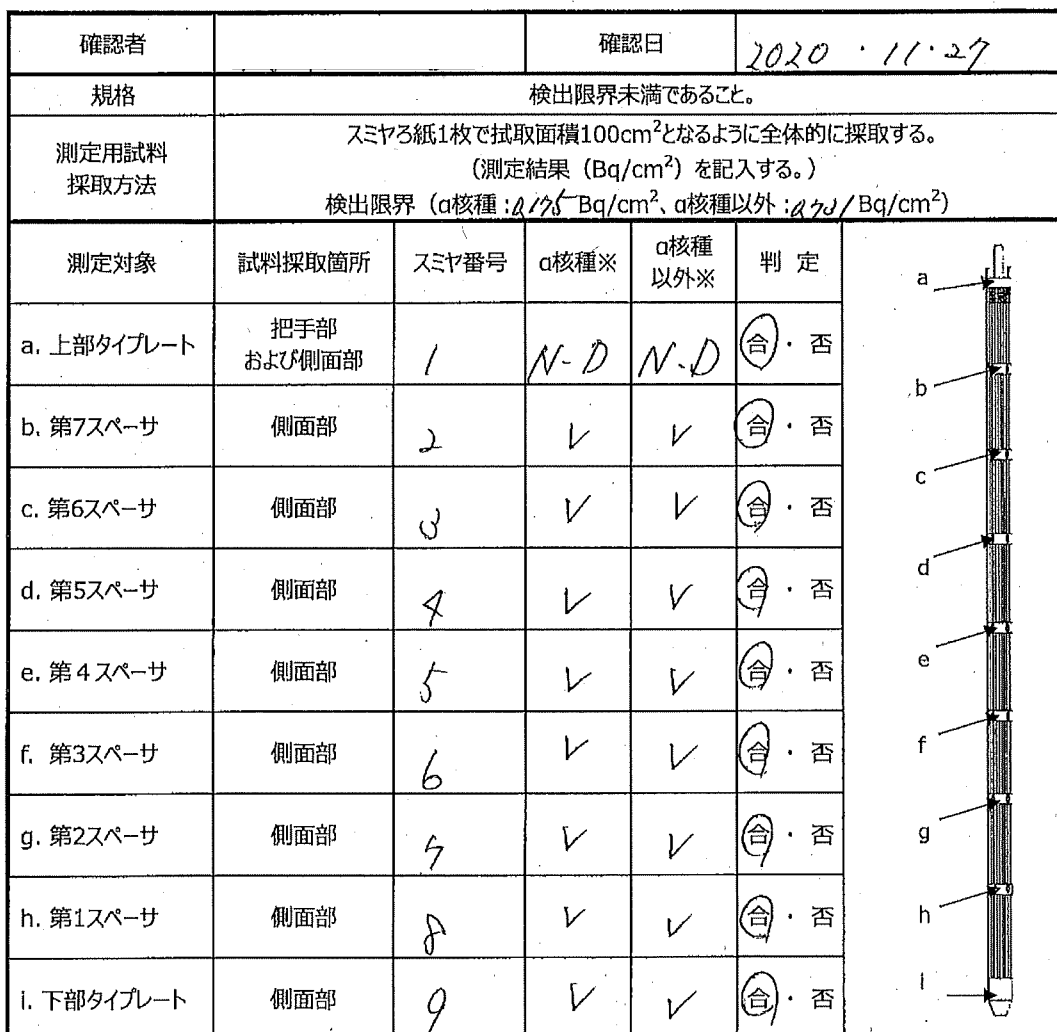 確認者 確認日 2020・11・27
規格 検出限界未満であること。
測定用試料
採取方法
スミヤろ紙1枚で拭取面積100cm²となるように全体的に採取する。
(測定結果(Bq/cm²)を記入する。)
検出限界(α核種: Bq/cm²、α核種以外: Bq/cm²)
測定対象 試料採取箇所 スミヤ番号 α核種※ α核種
以外※ 判 定
a. 上部タイプレート 把手部
および側面部 1 N-D N.D 合・否
b. 第7スペーサ 側面部 2 V V 合・否
c. 第6スペーサ 側面部 3 V V 合・否
d. 第5スペーサ 側面部 4 V V 合・否
e. 第4スペーサ 側面部 5 V V 合・否
f. 第3スペーサ 側面部 6 V V 合・否
g. 第2スペーサ 側面部 7 V V 合・否
h. 第1スペーサ 側面部 8 V V 合・否
i. 下部タイプレート 側面部 9 V V 合・否
a
b
c
d
e
f
g
h
i